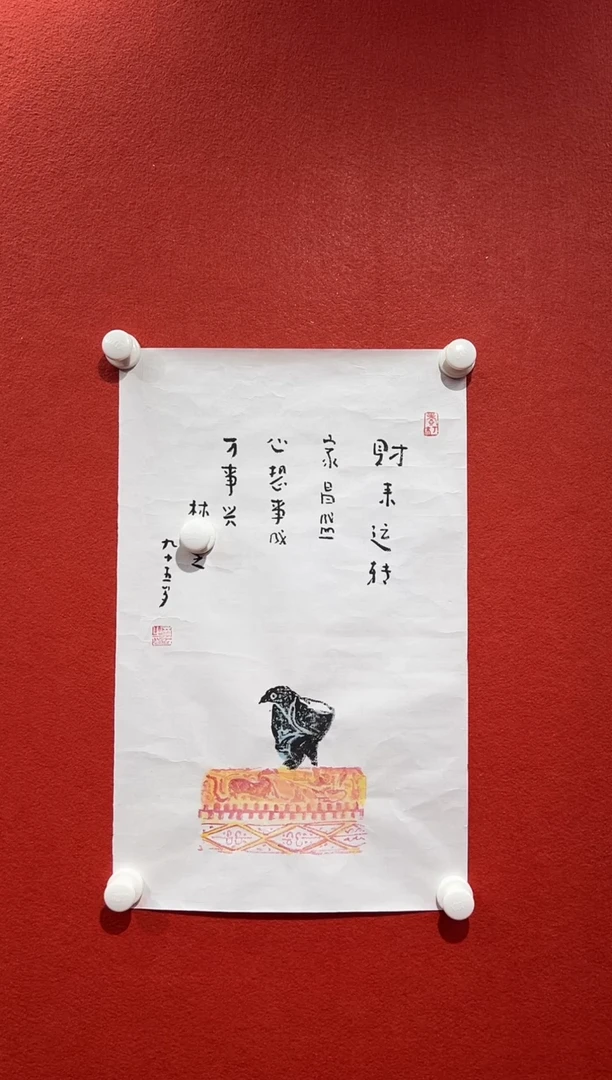 财来运转
家昌盛
心想事成
万事兴
林之
九十五岁